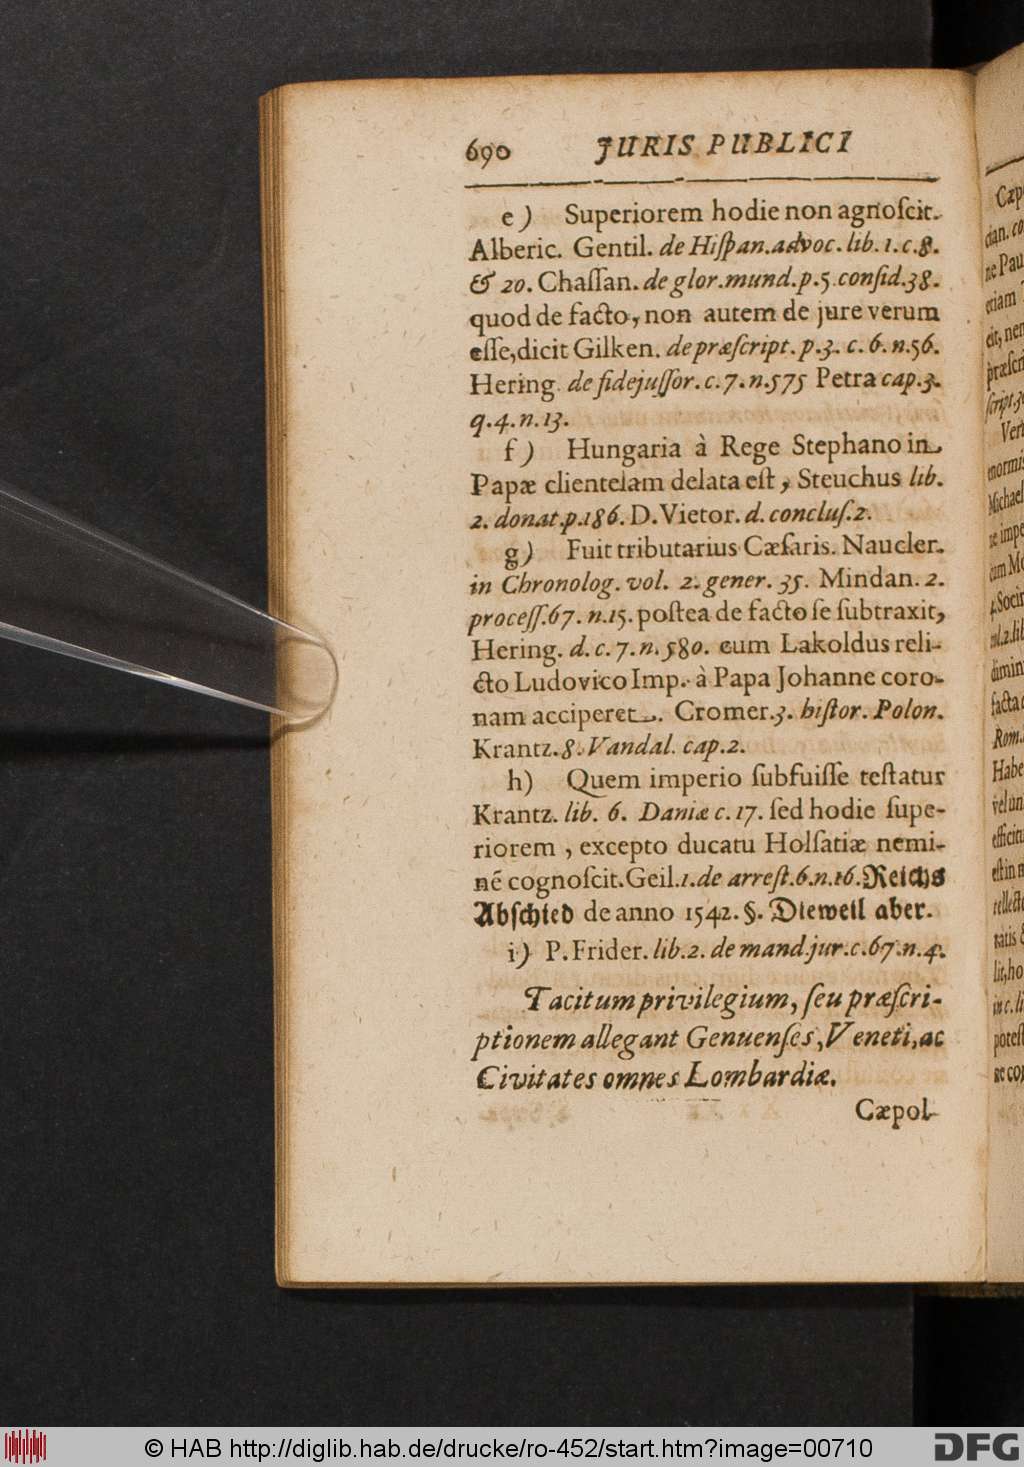 690 JURIS PUBLICI
e) Superiorem hodie non agnoſcit.
Alberic. Gentil. de Hiſpan. advoc. lib. 1. c. 8.
& 20. Chaſſan. de glor. mund. p. 5. conſid. 38.
quod de facto, non autem de jure verum
eſſe, dicit Gilken. de præſcript. p. 3. c. 6. n. 56.
Hering. de fidejuſſor. c. 7. n. 575 Petra cap. 3.
q. 4. n. 13.
f) Hungaria à Rege Stephano in
Papæ clientelam delata eſt, Steuchus lib.
2. donat. p. 186. D. Vietor. d. concluſ. 2.
g) Fuit tributarius Cæſaris. Naucler.
in Chronolog. vol. 2. gener. 35. Mindan. 2.
proceſſ. 67. n. 15. poſtea de facto ſe ſubtraxit,
Hering. d. c. 7. n. 580. cum Lakoldus reli-
cto Ludovico Imp. à Papa Johanne coro-
nam acciperet. Cromer. 3. hiſtor. Polon.
Krantz. 8. Vandal. cap. 2.
h) Quem imperio ſubfuiſſe teſtatur
Krantz. lib. 6. Daniæ c. 17. ſed hodie ſupe-
riorem, excepto ducatu Holſatiæ nemi-
nē cognoſcit. Geil. 1. de arreſt. 6. n. 16. Reichs
Abſchied de anno 1542. §. Dieweil aber.
i) P. Frider. lib. 2. de mand. jur. c. 67. n. 4.
Tacitum privilegium, ſeu præſcri-
ptionem allegant Genuenſes, Veneti, ac
Civitates omnes Lombardiæ.
Cæpol-
© HAB http://diglib.hab.de/drucke/ro-452/start.htm?image=00710
DFG